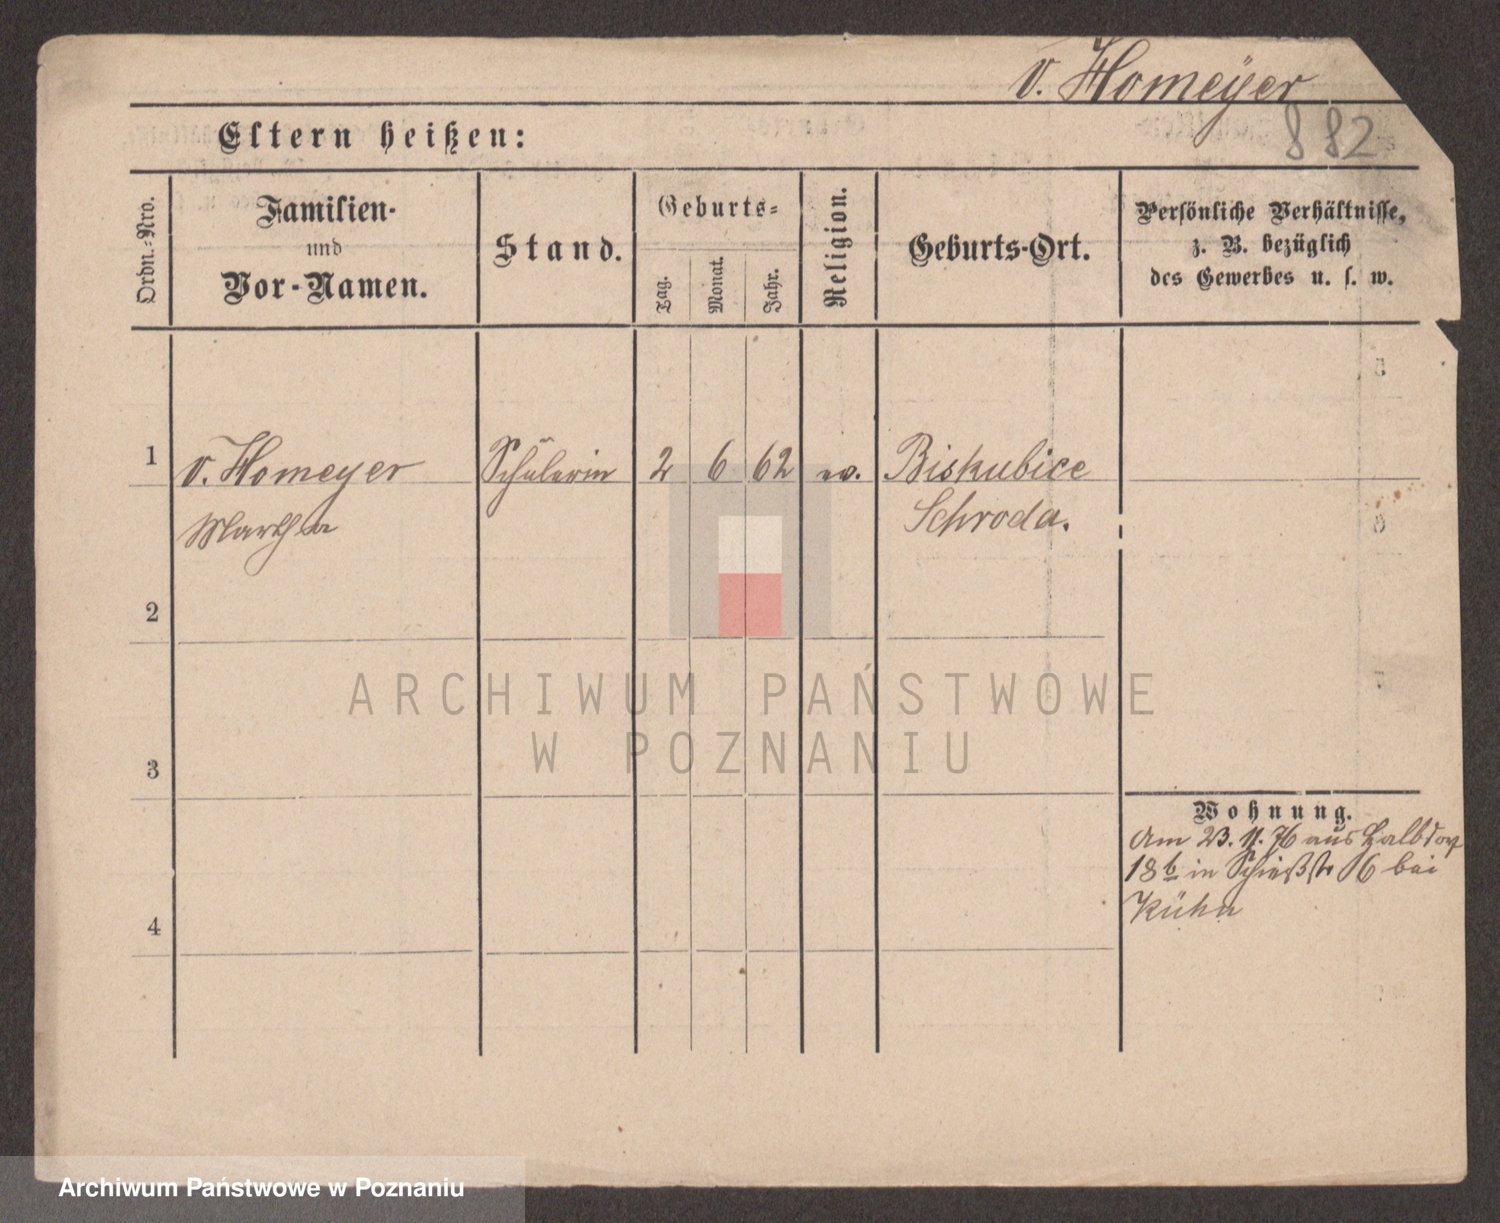 v. Homeÿer
882
Eltern heißen:
Ordn.-Nro.
Familien-
und
Vor-Namen.
Stand.
Geburts-
Tag.
Monat.
Jahr.
Religion.
Geburts-Ort.
Persönliche Verhältnisse,
z. B. bezüglich
des Gewerbes u. s. w.
1
v. Homeyer
Martha
Schülerin
2
6
62
ev.
Biskubice
Schroda.
2
3
4
Wohnung.
Am 23. 11. 76 aus Halbdorf
18 b in Schießstr 6 bei
Kühn
ARCHIWUM PAŃSTWOWE
W POZNANIU
Archiwum Państwowe w Poznaniu